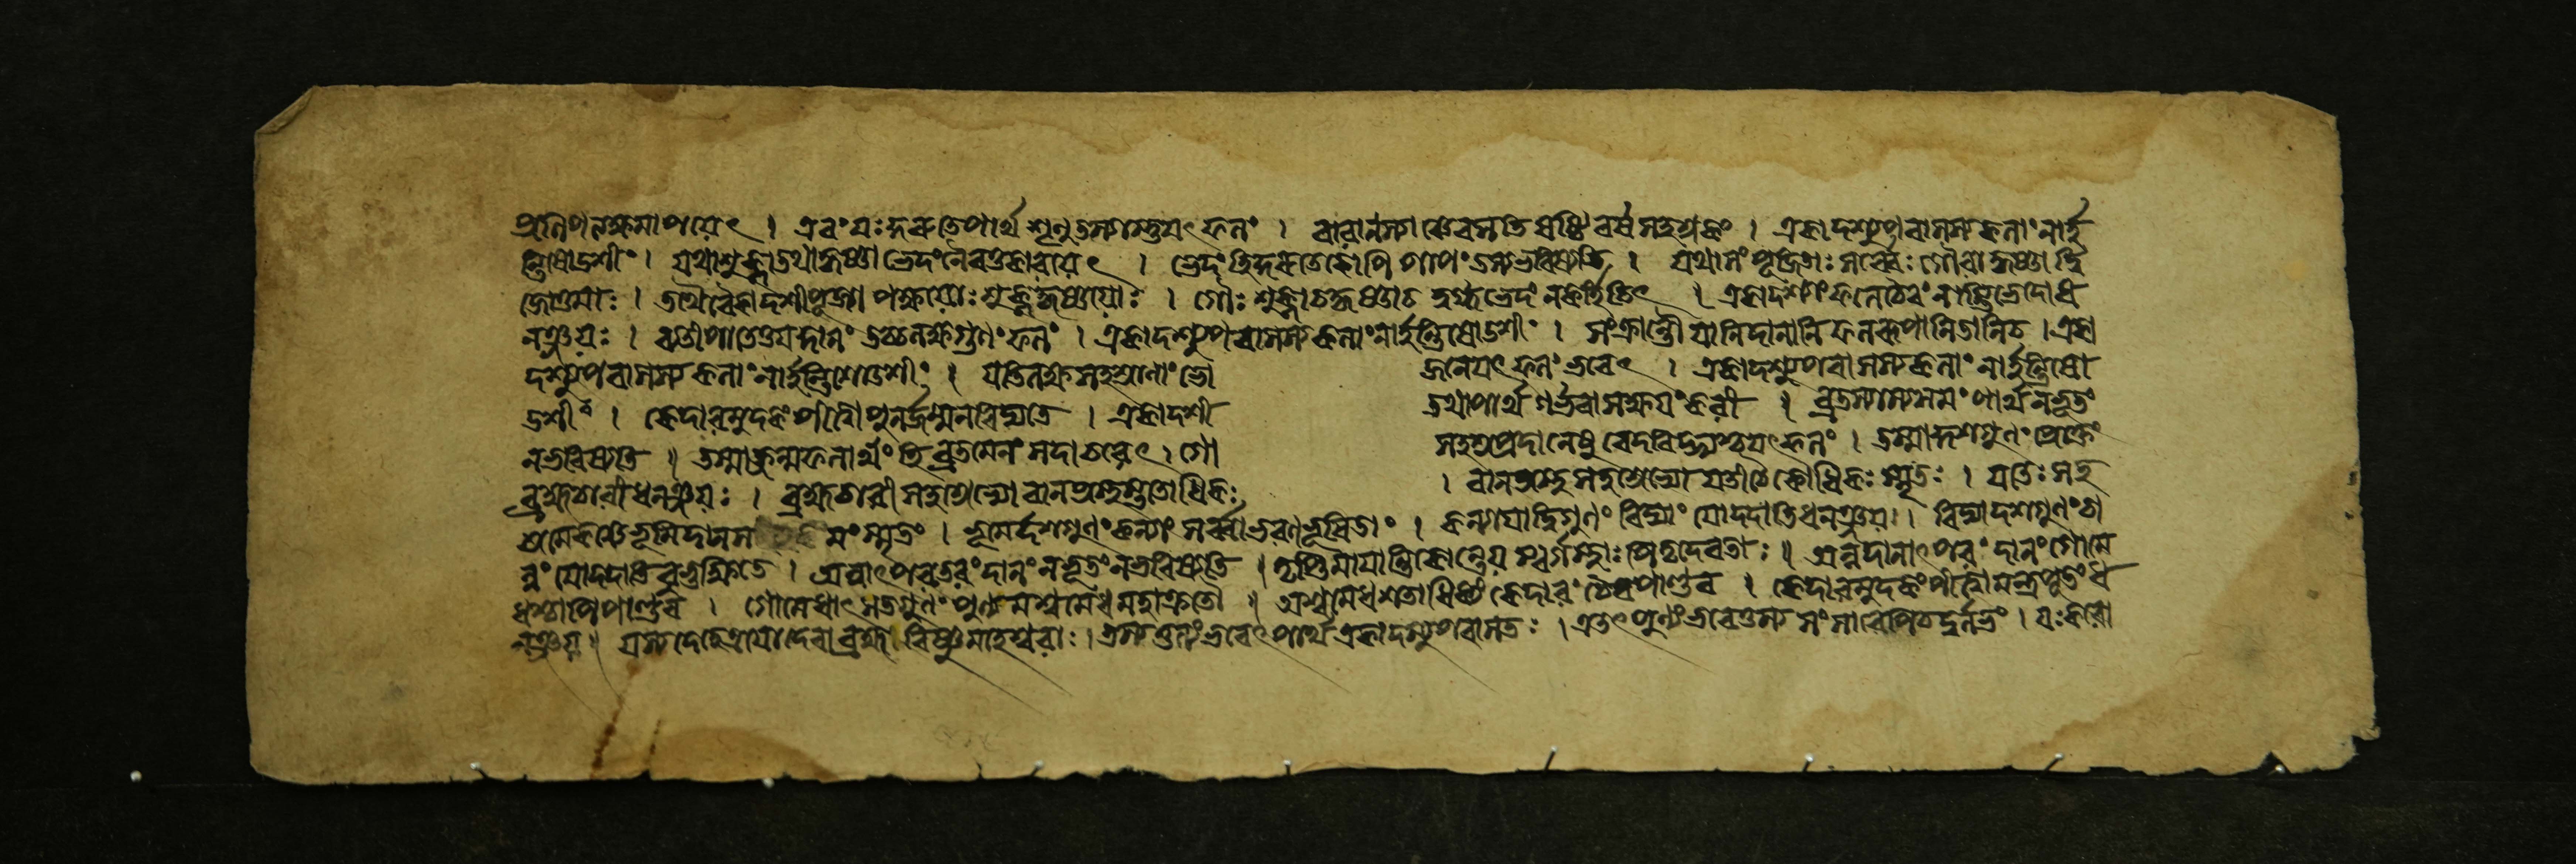 প্রতিপলক্ষমাপয়েৎ । এবং যঃ কুরুতে পার্থ শৃণু তস্যাস্তু যৎ ফলং । বারানস্যাঞ্চেবসতি ষষ্ঠি বর্ষ সহস্রকং । একাদশ্যুপবাসস্য কলাং নার্হ
ন্তি ষোডশীং । যথা শুক্লা তথা কৃষ্ণা ভেদং নৈবতু কারয়েৎ । ভেদং হি কুরুতে কোপি পাপং তস্য ভবিষ্যতি । যথা সংপূজিতাঃ সর্ব্বৈঃ গৌরা কৃষ্ণা দ্বি
জোত্তমাঃ । তথৈবৈকাদশী পূজ্যা পক্ষয়োঃ শুক্লকৃষ্ণয়োঃ । গৌঃ শুক্লা চ কৃষ্ণা চ দুগ্ধভেদং ন কর্হিচিৎ । একাদশ্যাং ফলেচৈবং নাস্তি ভেদো ধ
নঞ্জয়ঃ । ব্যতীপাতেতু যদ্দানং তচ্চ লক্ষগুণং ফলং । একাদশ্যুপবাসস্য কলাং নার্হন্তি ষোডশীং । সংক্রান্তৌ যানি দানানি ফলরূপানি তানি চ । একা
দশ্যুপবাসস্য কলাং নার্হন্তি শোডশীং । যতিলক্ষসহস্রানাং ভো জনে যৎ ফলং ভবেৎ । একাদশ্যুপবাসস্য কলাং নার্হন্তি ষো
ডশীং । কেদারমুদকং পীত্বা পুনর্জন্ম ন বিদ্যতে । একাদশী তথা পার্থ গর্ভবাসক্ষয়ং করী । ব্রতস্যাস্য সমং পার্থ ন ভূতং
ন ভবিষ্যতি ॥ তস্মাজ্জন্মফলার্থং হি ব্রতমেনং সদাচরেৎ । গো সহস্রপ্রদানেষু বেদবিদ্যাসু যৎ ফলং । তস্মাদ্দশগুণং প্রোক্তং
ব্রহ্মচারী ধনঞ্জয়ঃ । ব্রহ্মচারী সহস্রেভ্যো বানপ্রস্থস্ততোধিকঃ । বানপ্রস্থ সহস্রেভ্যো যতীচৈকোধিকঃ স্মৃতঃ । যতেঃ সহ
ভূমিদান সমং স্মৃতং । ভূমের্দশগুণং কন্যাং সর্ব্বাভরণভূষিতাং । কন্যায়াদ্বিগুণং বিদ্যাং যোদদাতি ধনঞ্জয় । বিদ্যাদশগুণং চা
ন্নং যোদদাতি বুভুক্ষিতে । অন্নাৎ পরতরং দানং ন ভূতং ন ভবিষ্যতি । তৃপ্তিমায়ান্তি কৌন্তেয় স্বর্গস্থাঃ পিতৃদেবতাঃ ॥ অন্নদানাৎ পরং দানং গোমে
ধশ্চাপি পাণ্ডব । গোমেধাৎ শতগুণং পুণ্যমশ্বমেধ মহাক্রতো ॥ অশ্বমেধ শতাধিক্যং কেদারং চৈব পাণ্ডব । কেদারমুদকং পীত্বা মন্ত্রপূতং ধ
নঞ্জয় ॥ যস্য দেহে ত্রয়ো দেবা ব্রহ্মা বিষ্ণু মহেশ্বরাঃ । তস্য তুল্যং ভবেৎ পার্থ একাদশ্যুপবাসতঃ । এতৎ পুণ্যং ভবেত্তস্য সংসারেপি চ দুর্ল্লভং । যঃ করো